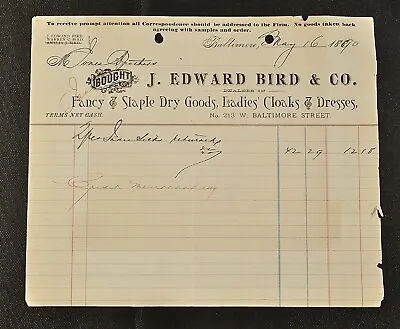 To receive prompt attention all Correspondence should be addressed to the Firm. No goods taken back
agreeing with samples and order.
J. EDWARD BIRD.
WARREN C. BIRD.
Baltimore, May 16 1890
M Jones
BOUGHT
OF
J. EDWARD BIRD & CO.
DEALERS IN
Fancy & Staple Dry Goods, Ladies' Cloaks & Dresses,
TERMS NET CASH.
No. 213 W. BALTIMORE STREET.
2 pcs Silk returned
42 29 12 18